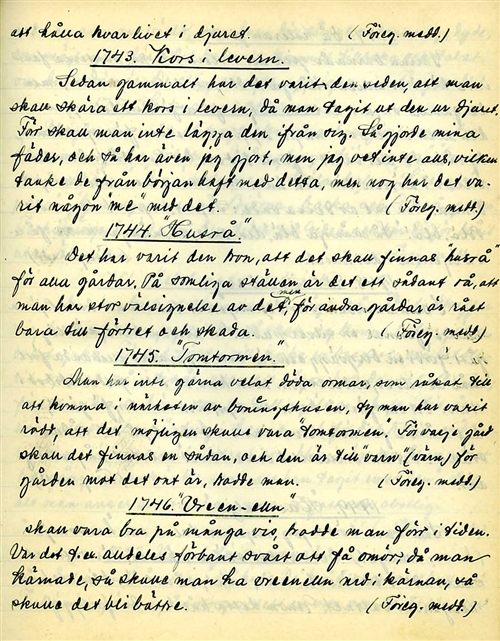 att hålla kvar livet i djuret. (Föreg. medd.)
1743. Kors i levern.
Sedan gammalt har det varit den seden, att man
skall skära ett kors i levern, då man tagit ut den ur djuret.
Förr skall man inte lägga den ifrån sig. Så gjorde mina
fäder, och så har även jag gjort, men jag vet inte alls, vilken
tanke de från början haft med detta, men nog har det va-
rit någon me" med det. (Föreg. medd.)
1744. "Husrå".
Det har varit den tron, att det skall finnas "husrå"
för alla gårdar. På somliga ställen är det ett sådant rå, att
man har stor välsignelse av det, men för andra gårdar är rået
bara till förtret och skada. (Föreg. medd.)
1745. "Tomtormen."
Man har inte gärna velat döda ormar, som råkat till
att komma i närheten av boningshusen, ty man har varit
rädd, att det möjligen skulle vara "tomtormen". För varje gård
skall det finnas en sådan, och den är till varn" (värn) för
gården mot det ont är, trodde man. (Föreg. medd.)
1746. "Vreen-elln"
skall vara bra på många vis, trodde man förr i tiden.
Var det t.ex. alldeles förbannt svårt att få smör, då man
kärnade, så skulle man ha vreenelln ned i kärnan, så
skulle det bli bättre. (Föreg. medd.)